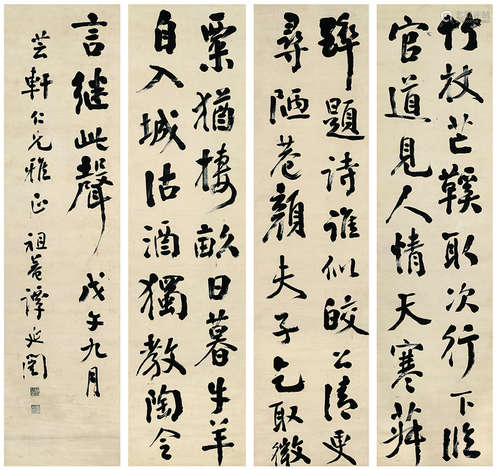 竹杖芒鞵取次行下臨
官道見人情天寒菽
醉題詩誰似皎公清更
尋陋巷顏夫子乞取微
粟猶棲畝日暮牛羊
自入城沽酒獨教陶令
言繼此聲 戊午九月
芸軒仁兄雅正 祖菴譚延闓